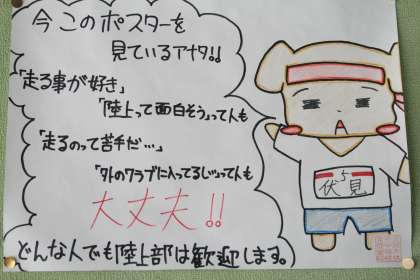 今このポスターを
見ているアナタ!!
「走る事が好き」
「陸上って面白そう」って人も
「走るのって苦手だ…」
「外のクラブに入ってるし」って人も
大丈夫!!
どんな人でも陸上部は歓迎します。
5
伏見